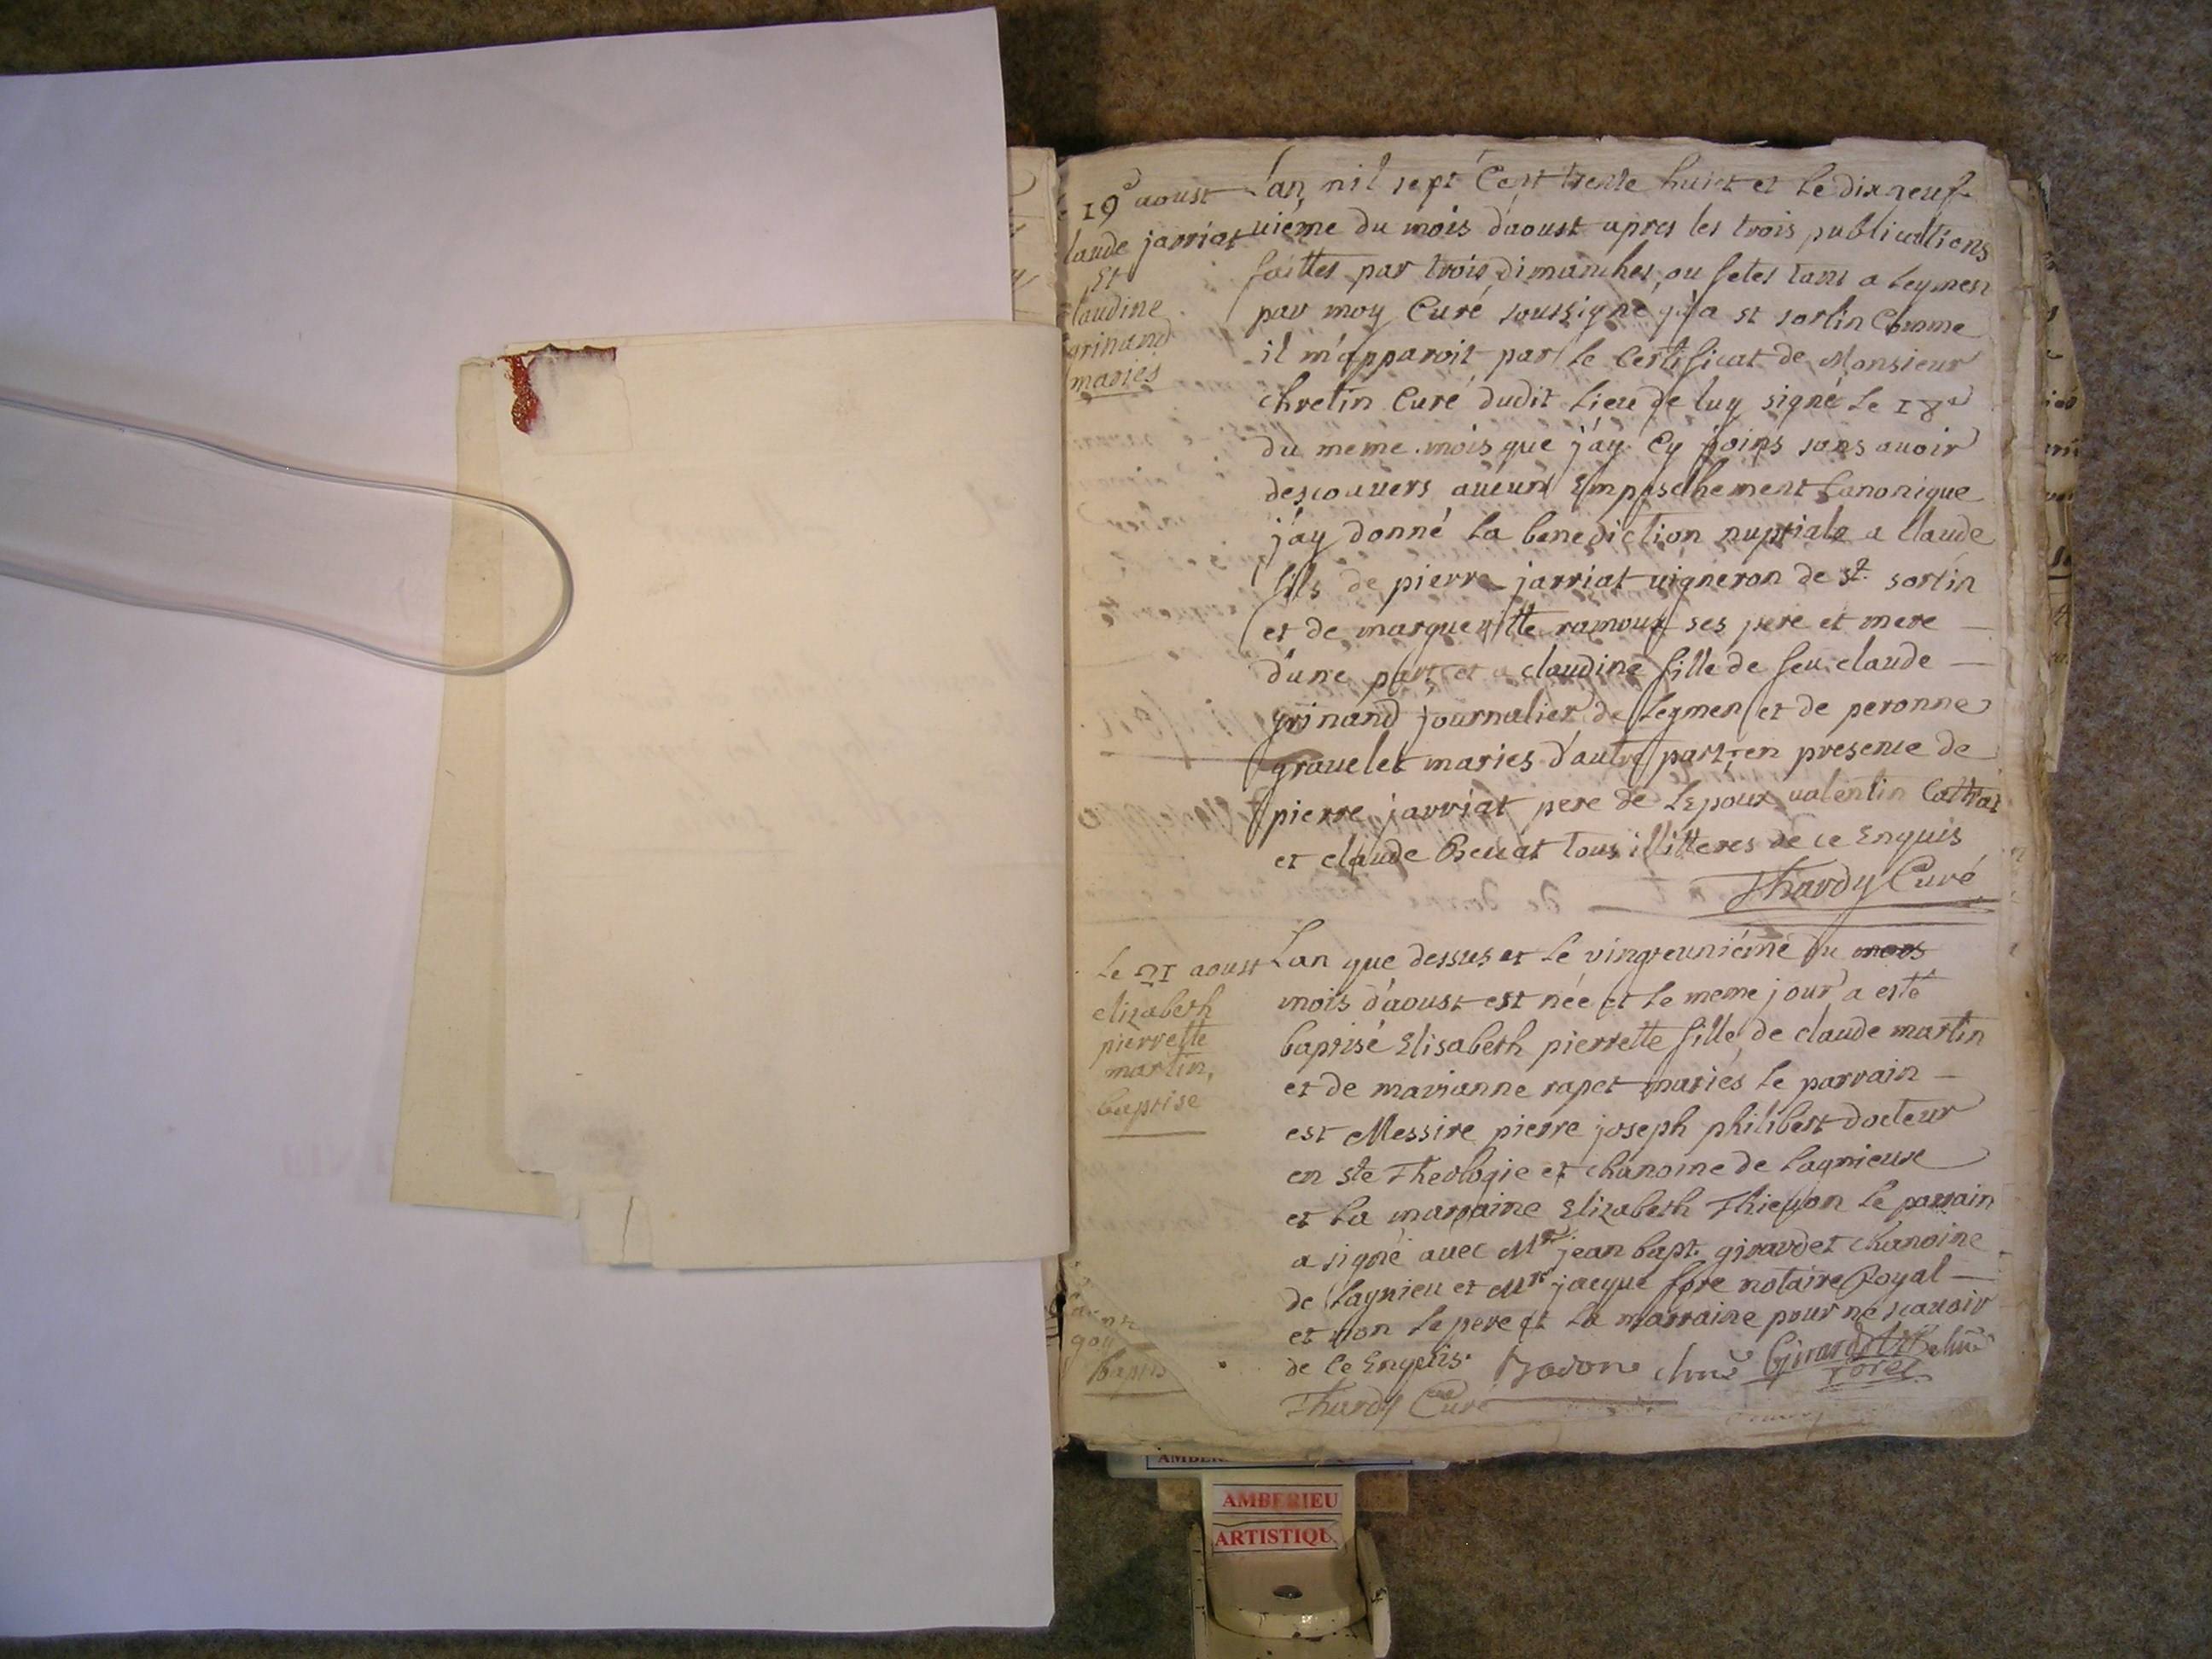 19e aoust
laude jarriat
Et
laudine
grinand
mariés
Lan mil sept Cent trente huict et Le dix neuf
uiéme du mois d'aoust apres les trois publications
faittes par trois dimanches ou fetes tant a Leymen
par moy Curé soussigné qu'a st sorlin Comme
il m'apparoit par le Certificat de Monsieur
chretin Curé dudit Lieu de luy signé Le 18e
du meme mois que j'ay Cy joins sans auoir
descouuers aucun Empeschement Canonique
j'ay donné La benediction nuptiale a Claude
fils de pierre jarriat uigneron de st. sorlin
et de margueritte ramoux ses pere et mere
d'une part et a claudine fille de feu claude
grinand journalier de Leymen et de peronne
grauelet maries d'autre part; en presence de
pierre jarriat pere de Lepoux ualentin
et claude tous illitteres de ce Enquis
Thardy Curé
Le 21 aoust
elizabeth
pierrette
martin,
baptise
Lan que dessus et Le vingteuniéme du mois
mois d'aoust est née et Le meme jour a esté
baptisé Elisabeth pierrette fille de claude martin
et de marianne rapet mariés Le parrain
est Messire pierre joseph philibert docteur
en ste Theologie et chanoine de Lagnieux
et La marraine Elizabeth Le parrain
a signé auec Mre jean bapt. girardet chanoine
de Lagnieu et Mre jacque fore notaire Royal
et non Le pere et La marraine pour ne scauoir
de Ce Enquis. Girardet
fore
Thardy Curé
bapts
AMBERIEU
ARTISTIQU